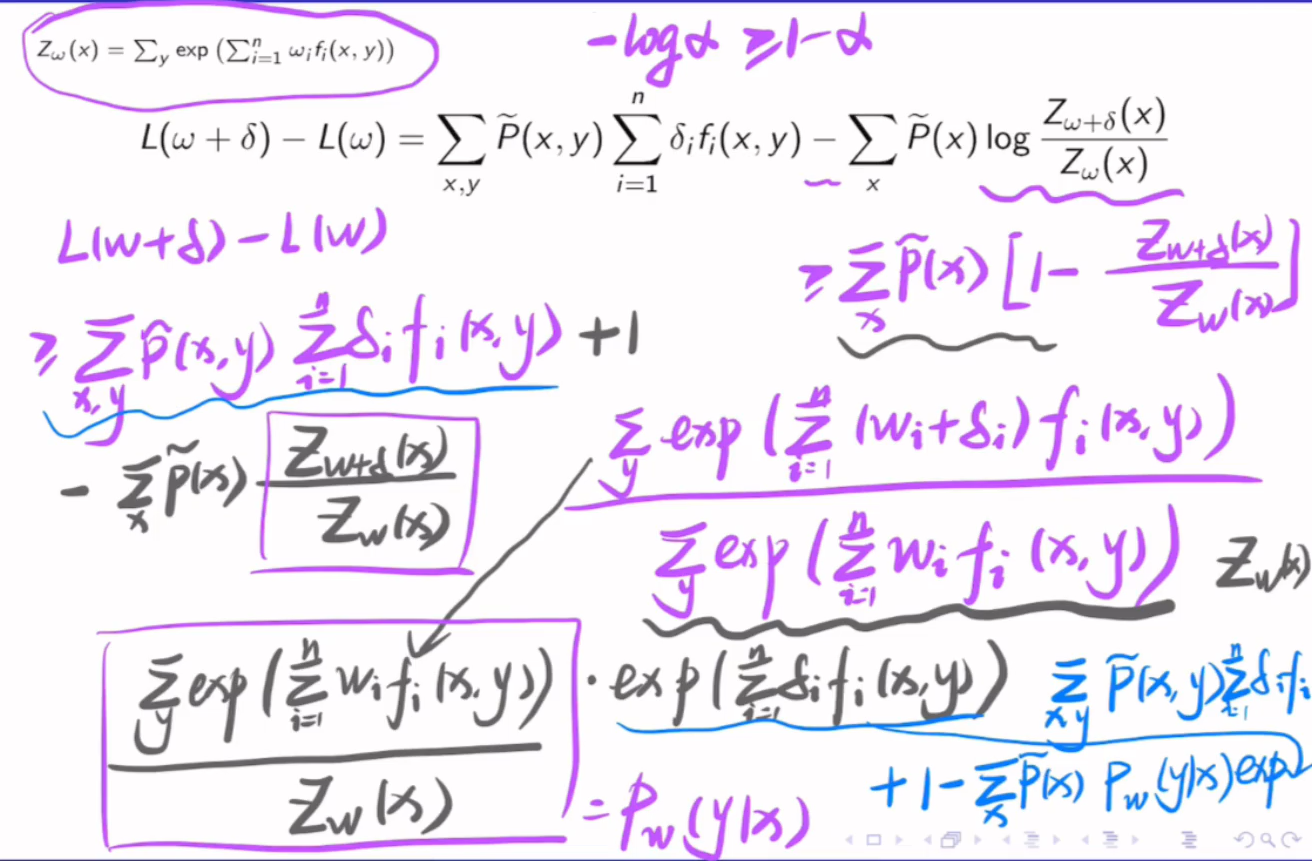 Z_ω(x) = ∑_y exp (∑_{i=1}^n ω_i f_i(x, y))
-log α ≥ 1-α
L(ω + δ) − L(ω) = ∑_{x,y} P̃(x, y) ∑_{i=1}^n δ_i f_i(x, y) − ∑_x P̃(x) log Z_{ω+δ}(x) / Z_ω(x)
L(w+δ) - L(w)
≥ ∑_x P̃(x) [1 - Z_{w+δ}(x) / Z_w(x)]
≥ ∑_{x,y} P̃(x,y) ∑_{i=1}^n δ_i f_i(x,y) + 1
- ∑_x P̃(x) Z_{w+δ}(x) / Z_w(x)
∑_y exp (∑_{i=1}^n (w_i+δ_i) f_i(x,y))
∑_y exp (∑_{i=1}^n w_i f_i (x,y)) Z_w(x)
∑_y exp (∑_{i=1}^n w_i f_i (x,y)) · exp (∑_{i=1}^n δ_i f_i (x,y))
Z_w(x)
= P_w(y|x)
∑_{x,y} P̃(x,y) ∑_{i=1}^n δ_i f_i
+ 1 - ∑_x P̃(x) P_w(y|x) exp